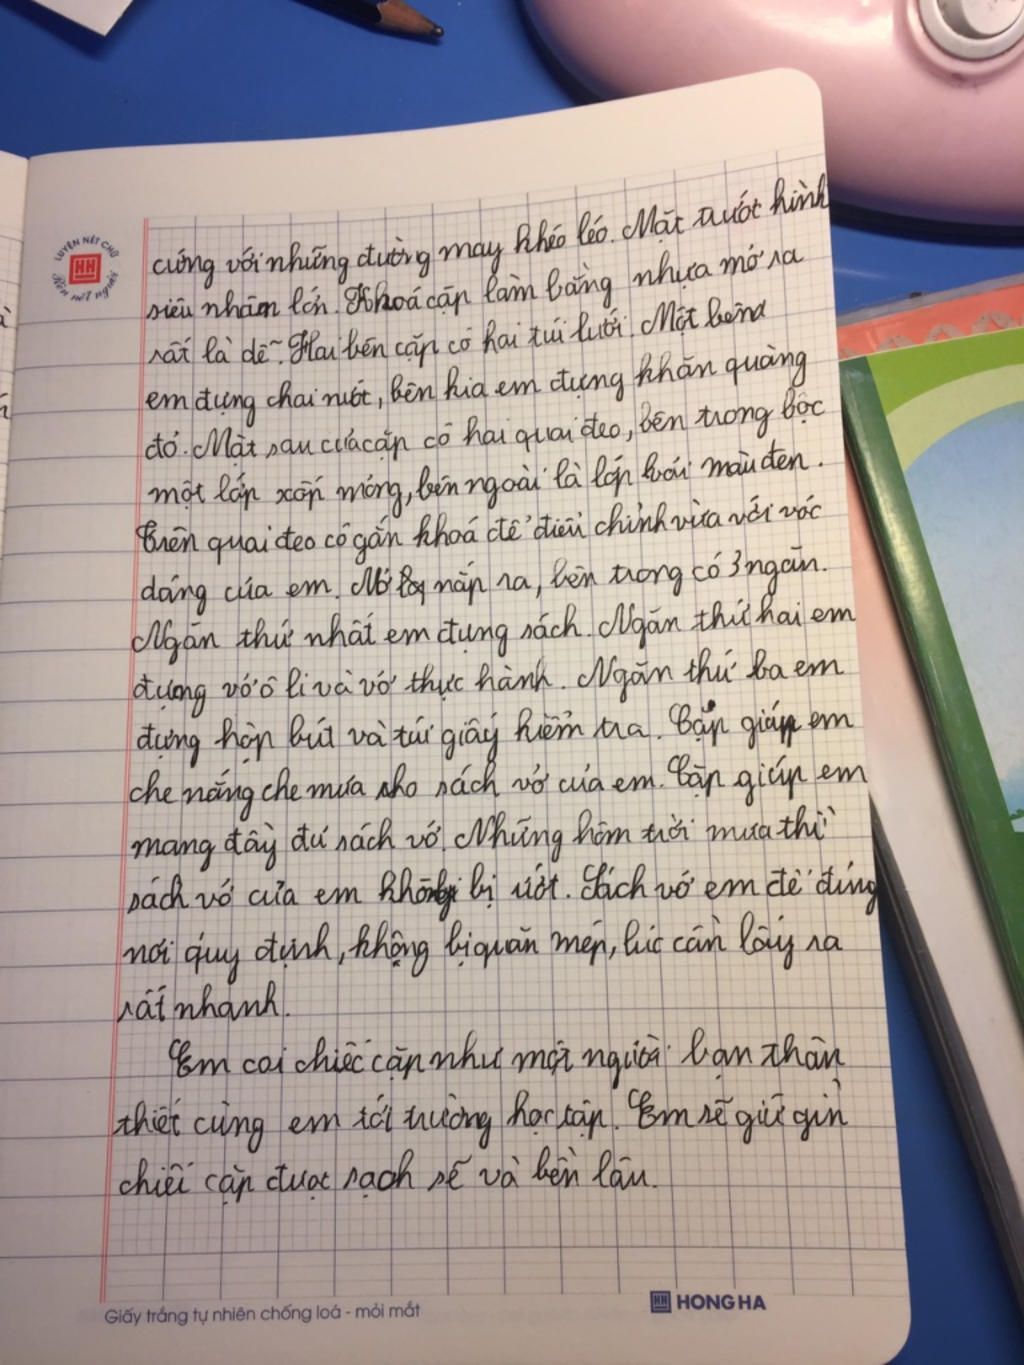 LUYỆN NÉT CHỮ
HH
Rèn nét người
cứng với những đường may khéo léo. Mặt trước hình
siêu nhân lớn. Khoá cặp làm bằng nhựa mở ra
rất là dễ. Hai bên cặp có hai túi lưới. Một bên
em đựng chai nước, bên kia em đựng khăn quàng
đỏ. Mặt sau của cặp có hai quai đeo, bên trong bọc
một lớp xốp mỏng, bên ngoài là lớp vải màu đen.
Trên quai đeo có gắn khoá để điều chỉnh vừa với vóc
dáng của em. Mở nắp ra, bên trong có 3 ngăn.
Ngăn thứ nhất em đựng sách. Ngăn thứ hai em
đựng vở ô li và vở thực hành. Ngăn thứ ba em
đựng hộp bút và túi giấy kiểm tra. Cặp giúp em
che nắng che mưa cho sách vở của em. Cặp giúp em
mang đầy đủ sách vở. Những hôm trời mưa thì
sách vở của em không bị ướt. Sách vở em để đúng
nơi quy định, không bị quăn mép, lúc cần lấy ra
rất nhanh.
Em coi chiếc cặp như một người bạn thân
thiết cùng em tới trường học tập. Em sẽ giữ gìn
chiếc cặp được sạch sẽ và bền lâu.
Giấy trắng tự nhiên chống loá - mỏi mắt
HH HONG HA